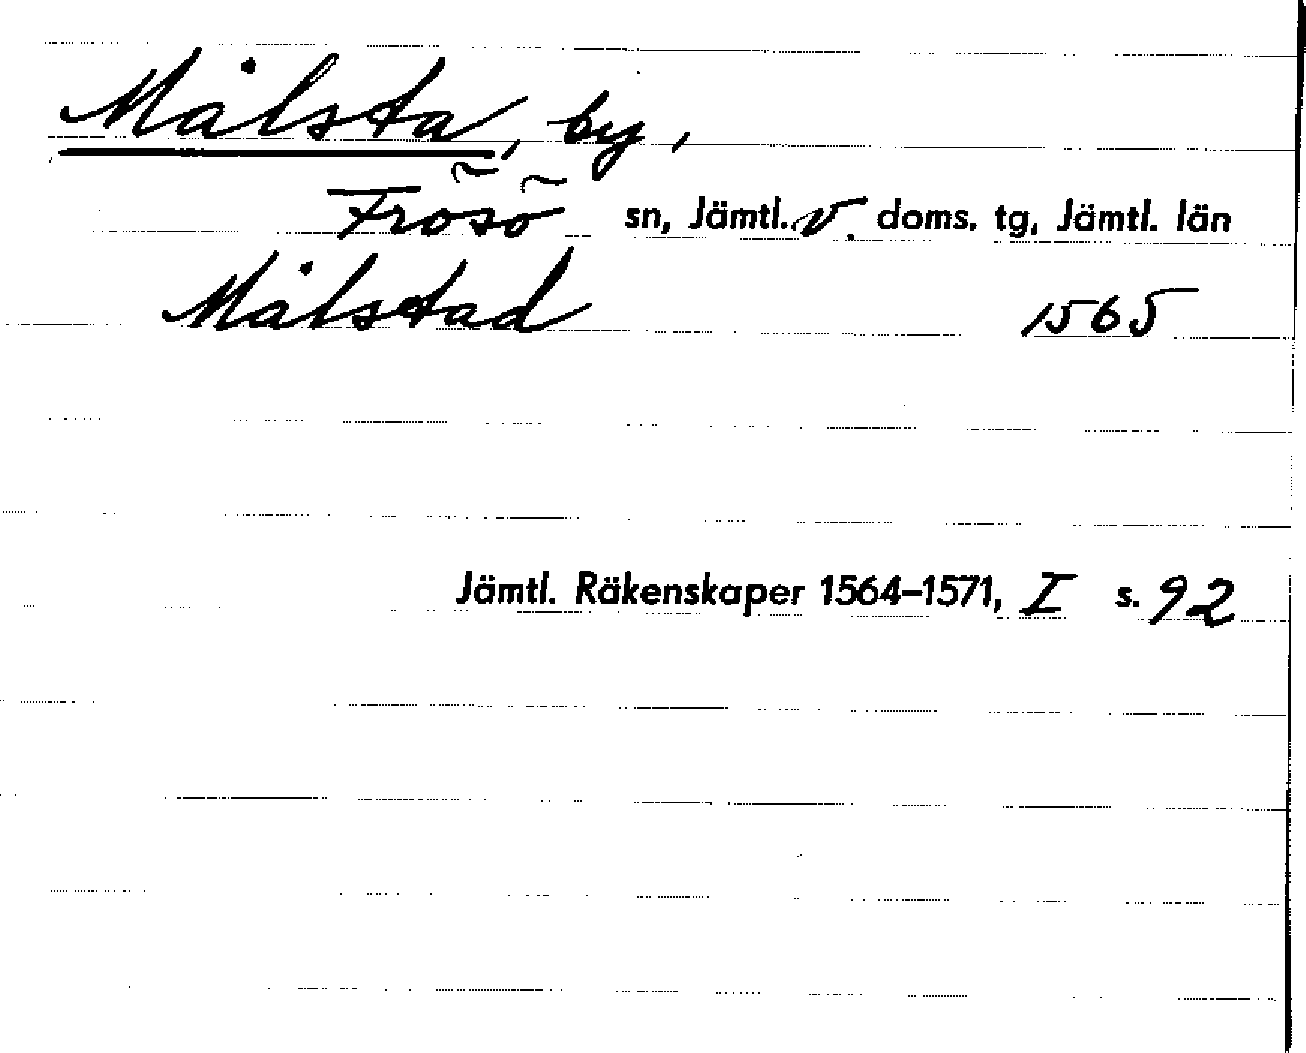 Målsta, by,
Frösö sn, Jämtl. v. doms. tg, Jämtl. län
Målstad 1565
Jämtl. Räkenskaper 1564–1571, I s. 92